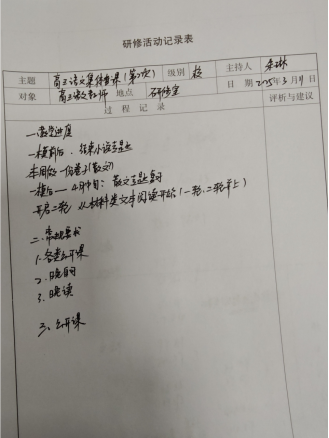 研修活动记录表
主题 高三语文集体备课(第2次) 级别 校 主持人
对象 高三语文教师 地点 研修室 日期 2025年3月
过程记录 评析与建议
一.教学进度
一模前后:结束小说专题
本周做一份卷子(散文)
一模后——4月中旬:散文专题复习
开启二轮 从材料类文本阅读开始(一轮、二轮并上)
二.常规要求
1.各类公开课
2.晚自习
3.晚读
三.公开课